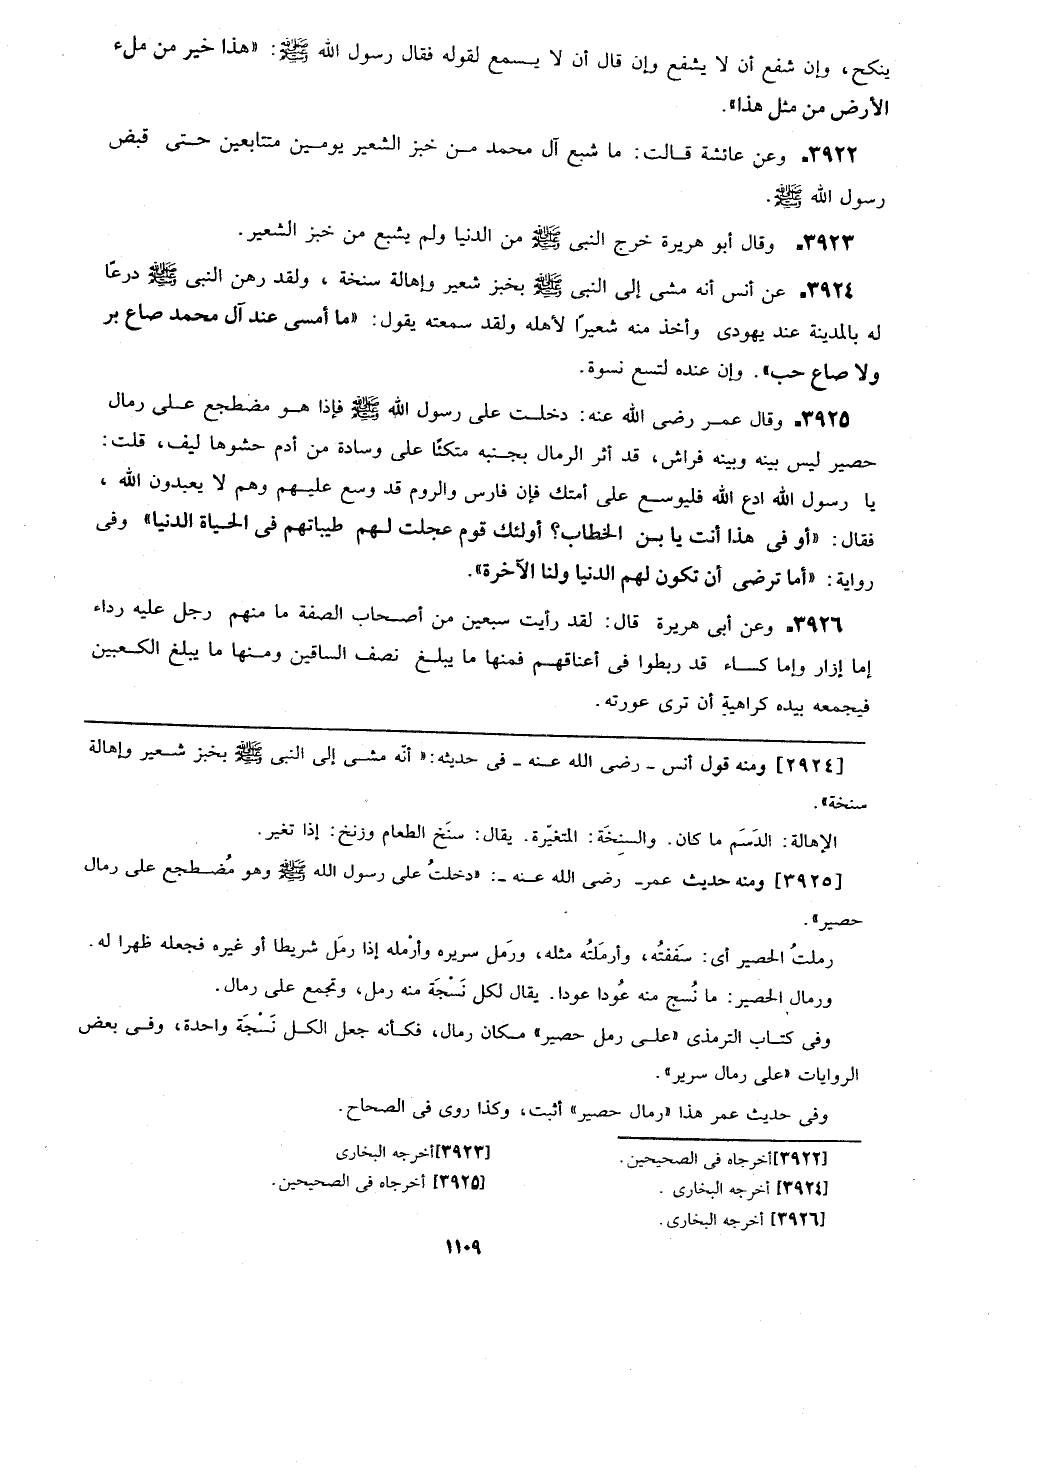 ينكح، وإن شفع أن لا يشفع وإن قال أن لا يسمع لقوله فقال رسول الله ﷺ: «هذا خير من ملء
الأرض من مثل هذا».
٣٩٢٢. وعن عائشة قالت: ما شبع آل محمد من خبز الشعير يومين متتابعين حتى قبض
رسول الله ﷺ.
٣٩٢٣. وقال أبو هريرة خرج النبى ﷺ من الدنيا ولم يشبع من خبز الشعير.
٣٩٢٤. عن أنس أنه مشى إلى النبى ﷺ بخبز شعير وإهالة سنخة ، ولقد رهن النبى ﷺ درعًا
له بالمدينة عند يهودى وأخذ منه شعيرًا لأهله ولقد سمعته يقول: «ما أمسى عند آل محمد صاع بر
ولا صاع حب». وإن عنده لتسع نسوة.
٣٩٢٥. وقال عمر رضى الله عنه: دخلت على رسول الله ﷺ فإذا هو مضطجع على رمال
حصير ليس بينه وبينه فراش، قد أثر الرمال بجنبه متكئًا على وسادة من أدم حشوها ليف، قلت:
يا رسول الله ادع الله فليوسع على أمتك فإن فارس والروم قد وسع عليهم وهم لا يعبدون الله ،
فقال: «أو فى هذا أنت يا بن الخطاب؟ أولئك قوم عجلت لهم طيباتهم فى الحياة الدنيا» وفى
رواية: «أما ترضى أن تكون لهم الدنيا ولنا الآخرة».
٣٩٢٦. وعن أبى هريرة قال: لقد رأيت سبعين من أصحاب الصفة ما منهم رجل عليه رداء
إما إزار وإما كساء قد ربطوا فى أعناقهم فمنها ما يبلغ نصف الساقين ومنها ما يبلغ الكعبين
فيجمعه بيده كراهية أن ترى عورته.
[٢٩٢٤] ومنه قول أنس ـ رضى الله عنه ـ فى حديثه:« أنّه مشى إلى النبى ﷺ بخبز شعير وإهالة
سنخة».
الإهالة: الدَسَم ما كان. والسنِخَة: المتغيّرة. يقال: سنَخ الطعام وزنخ: إذا تغير.
[٣٩٢٥] ومنه حديث عمرـ رضى الله عنه ـ: «دخلتُ على رسول الله ﷺ وهو مُضطجع على رمال
حصير».
رملتُ الحصير أى: سَففتُه، وأرمَلتُه مثله، ورَمل سريره وأرْمله إذا رمَل شريطا أو غيره فجعله ظهرا له.
ورمال الحصير: ما نُسج منه عُودا عودا. يقال لكل نَسْجَة منه رمل، وتجمع على رمال.
وفى كتاب الترمذى «على رمل حصير» مكان رمال، فكأنه جعل الكل نَسْجَة واحدة، وفى بعض
الروايات «على رمال سرير».
وفى حديث عمر هذا «رمال حصير» أثبت، وكذا روى فى الصحاح.
[٣٩٢٢]أخرجاه فى الصحيحين. [٣٩٢٣]أخرجه البخارى
[٣٩٢٤] أخرجه البخارى . [٣٩٢٥] أخرجاه فى الصحيحين.
[٣٩٢٦] أخرجه البخارى.
١١٠٩